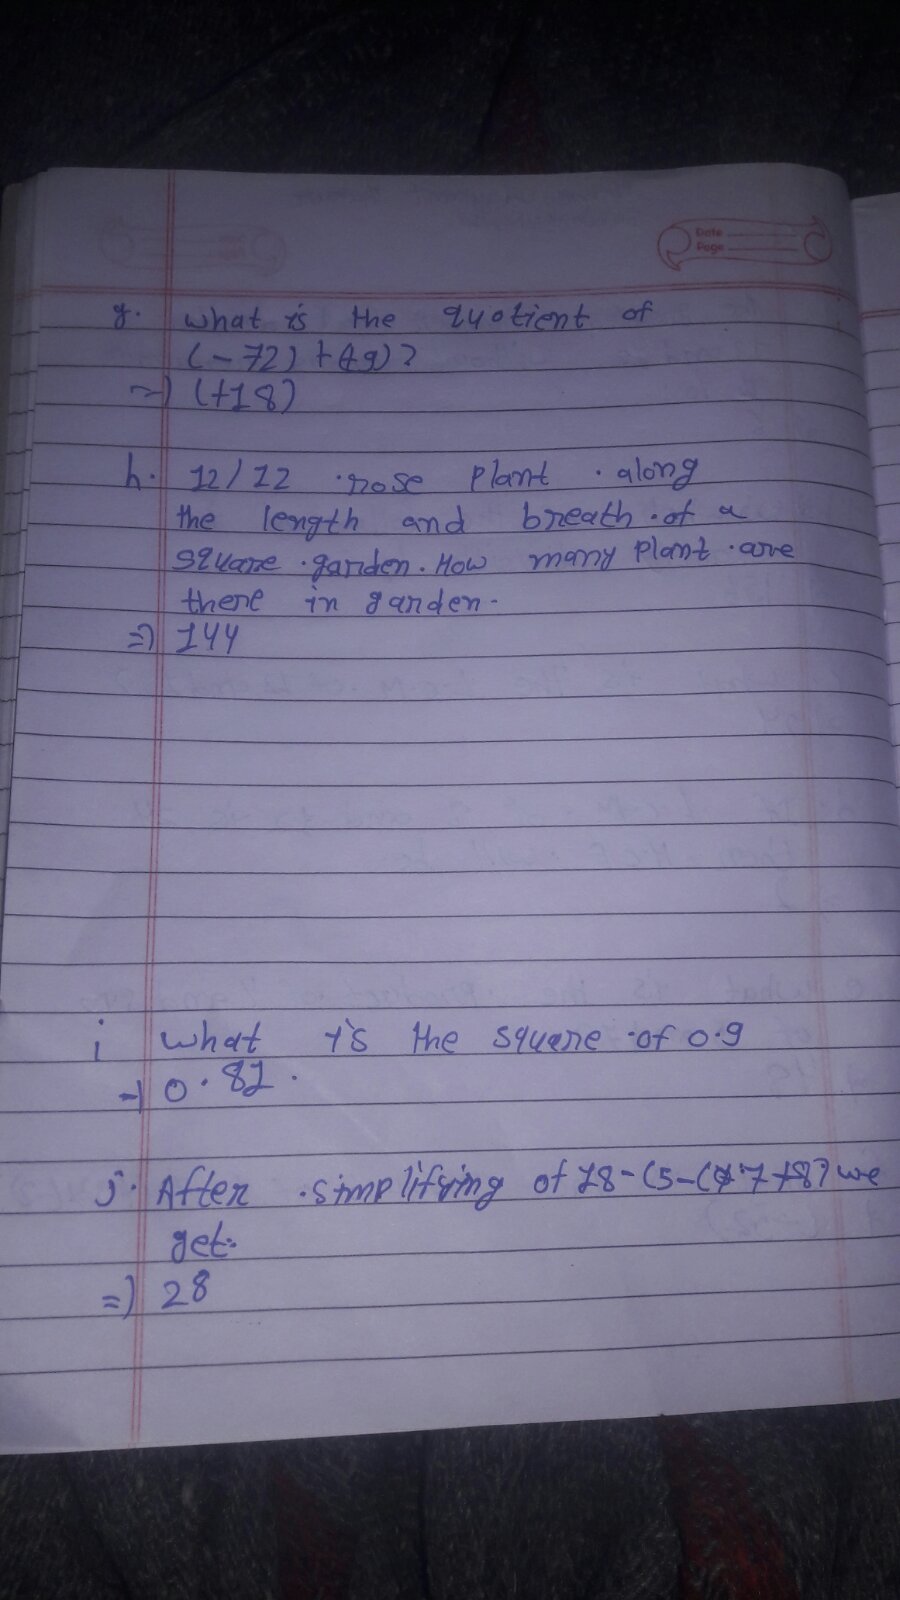 Date
Page
g. what is the quotient of
(-72) ÷ (+9)?
=> (+18)
h. 12/12 rose plant along
the length and breath of a
square garden. How many plant are
there in garden.
=> 144
i what is the square of 0.9
=> 0.81.
j. After simplifying of 18-(5-(7+8) we
get.
=> 28